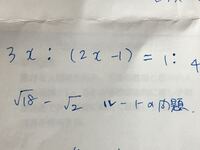 3x : (2x-1) = 1 : 4
√18 - √2 ルートの問題